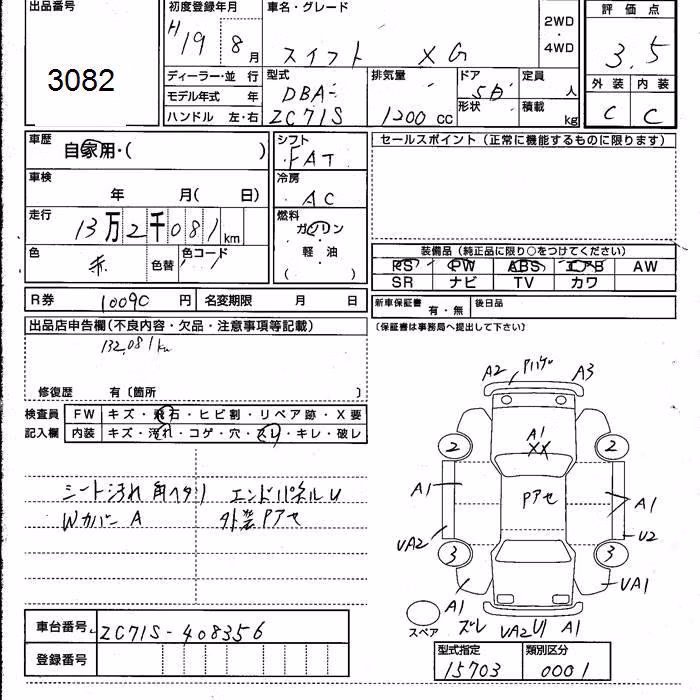 出品番号
3082
初度登録年月
H19 8月
車名・グレード
スイフト XG
2WD
・
4WD
評価点
3.5
外装 内装
C C
ディーラー・並行
モデル年式 年
ハンドル 左・右
型式
DBA-
ZC71S
排気量
1200 cc
ドア
5D
形状
定員
人
積載
kg
車歴
自家用・( )
車検
年 月( 日)
走行
13万2千081km
色
赤
色替
色コード
シフト
FAT
冷房
AC
燃料
ガソリン
・
軽油
( )
セールスポイント(正常に機能するものに限ります)
装備品(純正品に限り○をつけてください)
PS PW ABS エアB AW
SR ナビ TV カワ
R券 10090 円 名変期限 月 日
新車保証書 有・無 後日品
(保証書は事務局へ提出して下さい)
出品店申告欄(不良内容・欠品・注意事項等記載)
132,081km
修復歴 有〔箇所 〕
検査員 FW キズ・飛石・ヒビ割・リペア跡・X要
記入欄 内装 キズ・汚れ・コゲ・穴・スレ・キレ・破レ
シート汚れ 角ヘタリ エンドパネルU
Wカバー A 外装Pアセ
A2 Pハゲ A3
A1
XX
2 2
Pアセ
A1 A1
UA2 U2
3 3
A1 UA1
スペア
ズレ UA2 U1 A1
車台番号 ZC71S-408356
登録番号
型式指定 類別区分
15703 0001